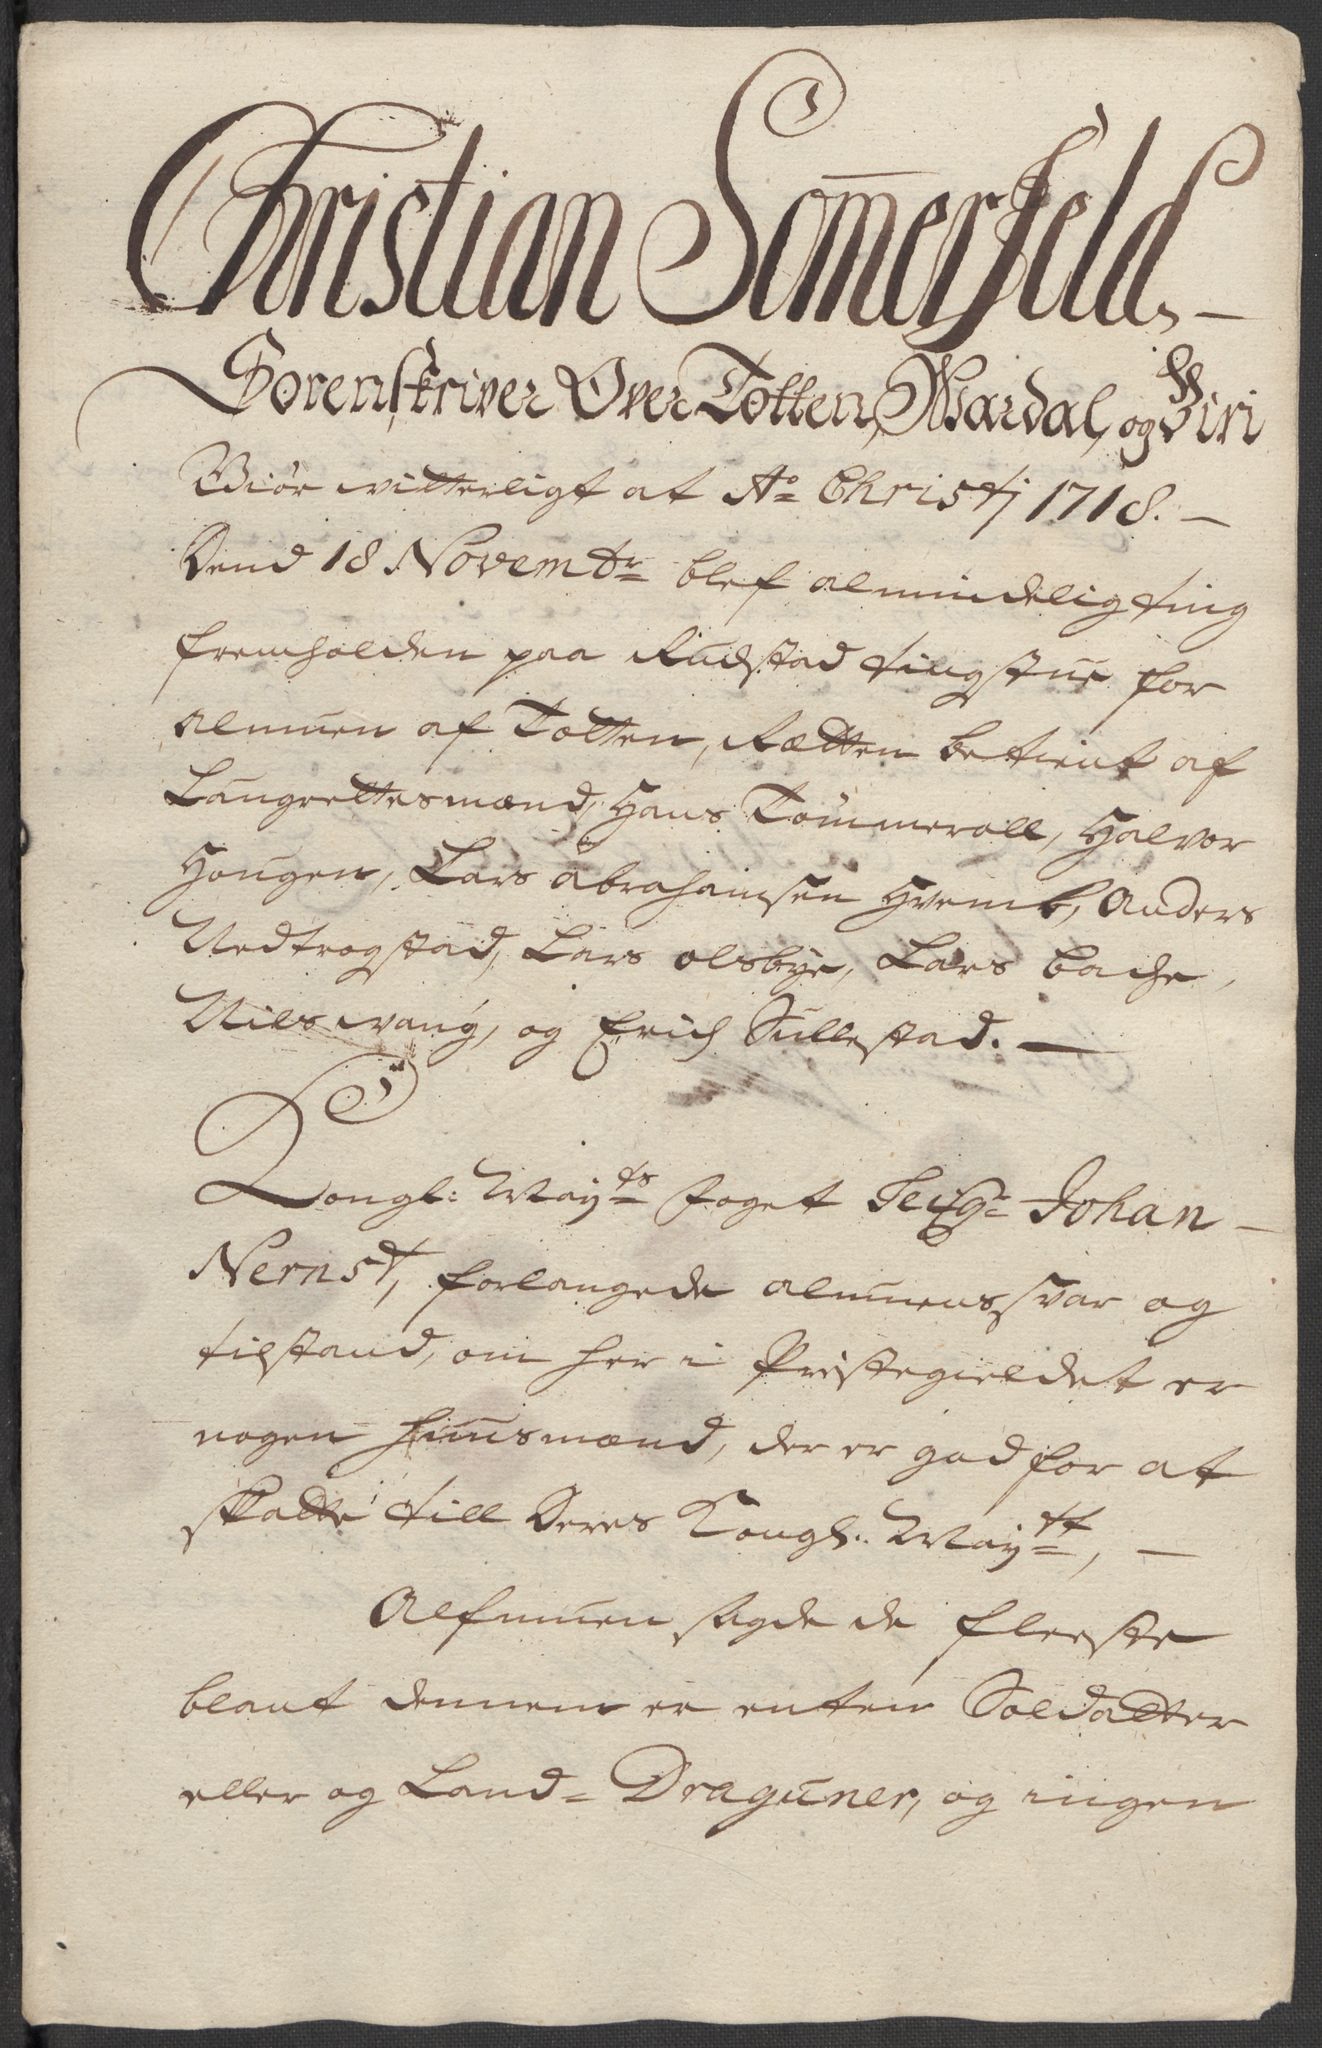 Christian Somerfeld. –
Sorenskriver Over Totten, Wardal, og Biri
Giör witterligt at Ao Christj 1718. –
Dend 18 Novembr blef almindelig ting
fremholden paa Rudstad tingstue for
Almuen af Totten, Rætten betient af
Laugrettesmænd, Hans Tömmeroll, Halvor
Hougen, Lars Abrahamsen Hvemb, Anders
Nedtrogstad, Lars olsbye, Lars bache,
Niels wang, og Erich Sullestad. –
Kongl: Mayts foget Seigr Johan –
Nernst, forlangede almuens svar og
tilstand, om her i Præstegieldet er
nogen huusmænd, der er god for at
skatte till Deres Kongl. Maytt, –
Alfmuen sagde de fleeste
blant dennem er enten Soldatter
eller og Land= Draguner, og ingen